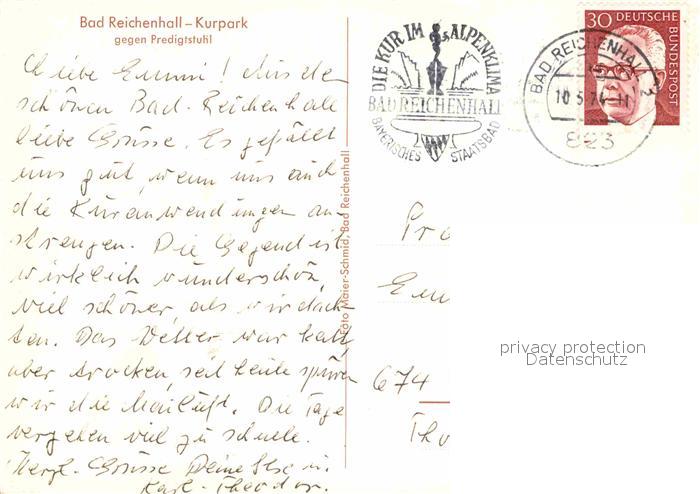 Bad Reichenhall – Kurpark
gegen Predigtstuhl
Liebe Emmi! Aus dem
schönen Bad-Reichenhall
liebe Grüsse. Es gefällt
uns gut, wenn uns auch
die Kuranwendungen an-
strengen. Die Gegend ist
wirklich wunderschön,
viel schöner, als wir dach-
ten. Das Wetter war kalt
aber trocken, seit heute spüren
wir die Mailuft. Die Tage
vergehen viel zu schnell.
Herzl. Grüsse Deine Else u.
Karl-Theodor.
Foto Maier-Schmid, Bad Reichenhall
DIE KUR IM ALPENKLIMA
BAD REICHENHALL
BAYERISCHES STAATSBAD
BAD REICHENHALL 2
10.5.74-11
823
30 DEUTSCHE
BUNDESPOST
Fra
Em
674
privacy protection
Datenschutz